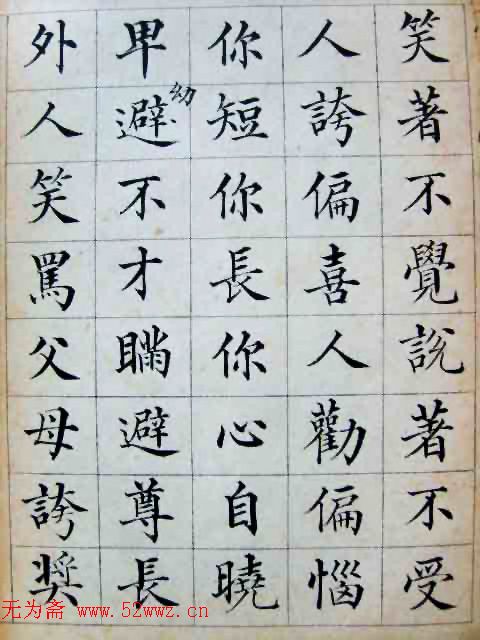 笑著不覺說著不受
人誇偏喜人勸偏惱
你短你長你心自曉
卑避幼不才瞞避尊長
外人笑罵父母誇奬
无为斋 www.52wwz.cn